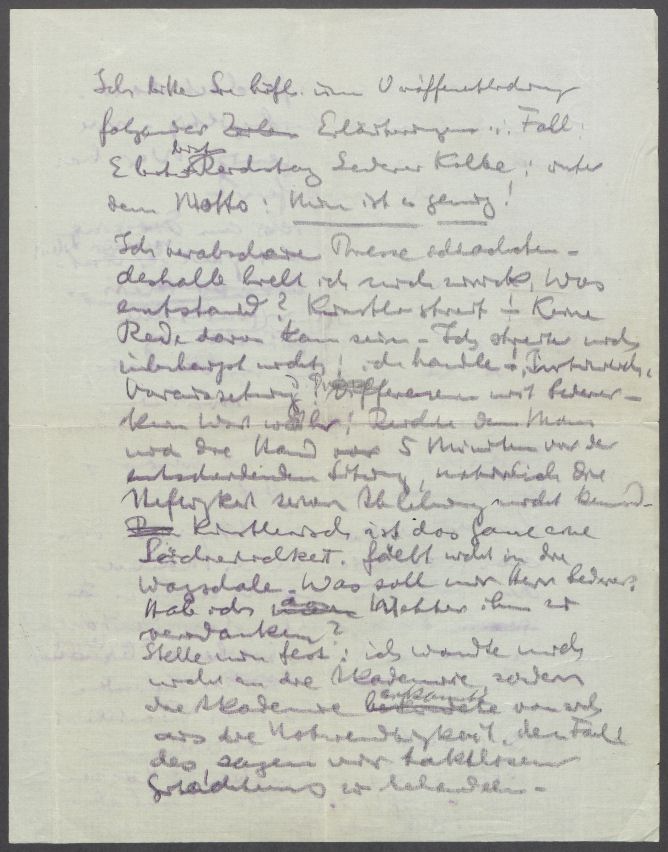 Ich bitte Sie höfl. um Veröffentlichung
folgender Zeilen Erläuterungen i. Fall:
Ebert büst Reichstag Lederer Kolbe; unter
dem Motto: Nun ist es genug!
Ich verabscheue Presse
deshalb hielt ich mich zurück. Was
entstand? Künstlerstreit – Keine
Rede davon kann sein – Ich streite mich
überhaupt nicht!
Voraussetzung! Differenzen mit Lederer –
kein Wort wahr! Reichte dem Mann
noch die Hand vor 5 Minuten vor der
entscheidenden Sitzung, natürlich die
Heftigkeit seiner Ablehnung nicht
Künstlerisch ist das Ganze eine
Lächerlichkeit. fällt nicht in die
Wagschale. Was soll mir Herr Lederer?
Hab ich ihm zu
verdanken?
Stelle nun fest: ich wandte mich
nicht an die Akademie, sondern
die Akademie erkannte von sich
aus die Notwendigkeit, den Fall
des sagen wir taktlosen
Gutachtens zu behandeln –